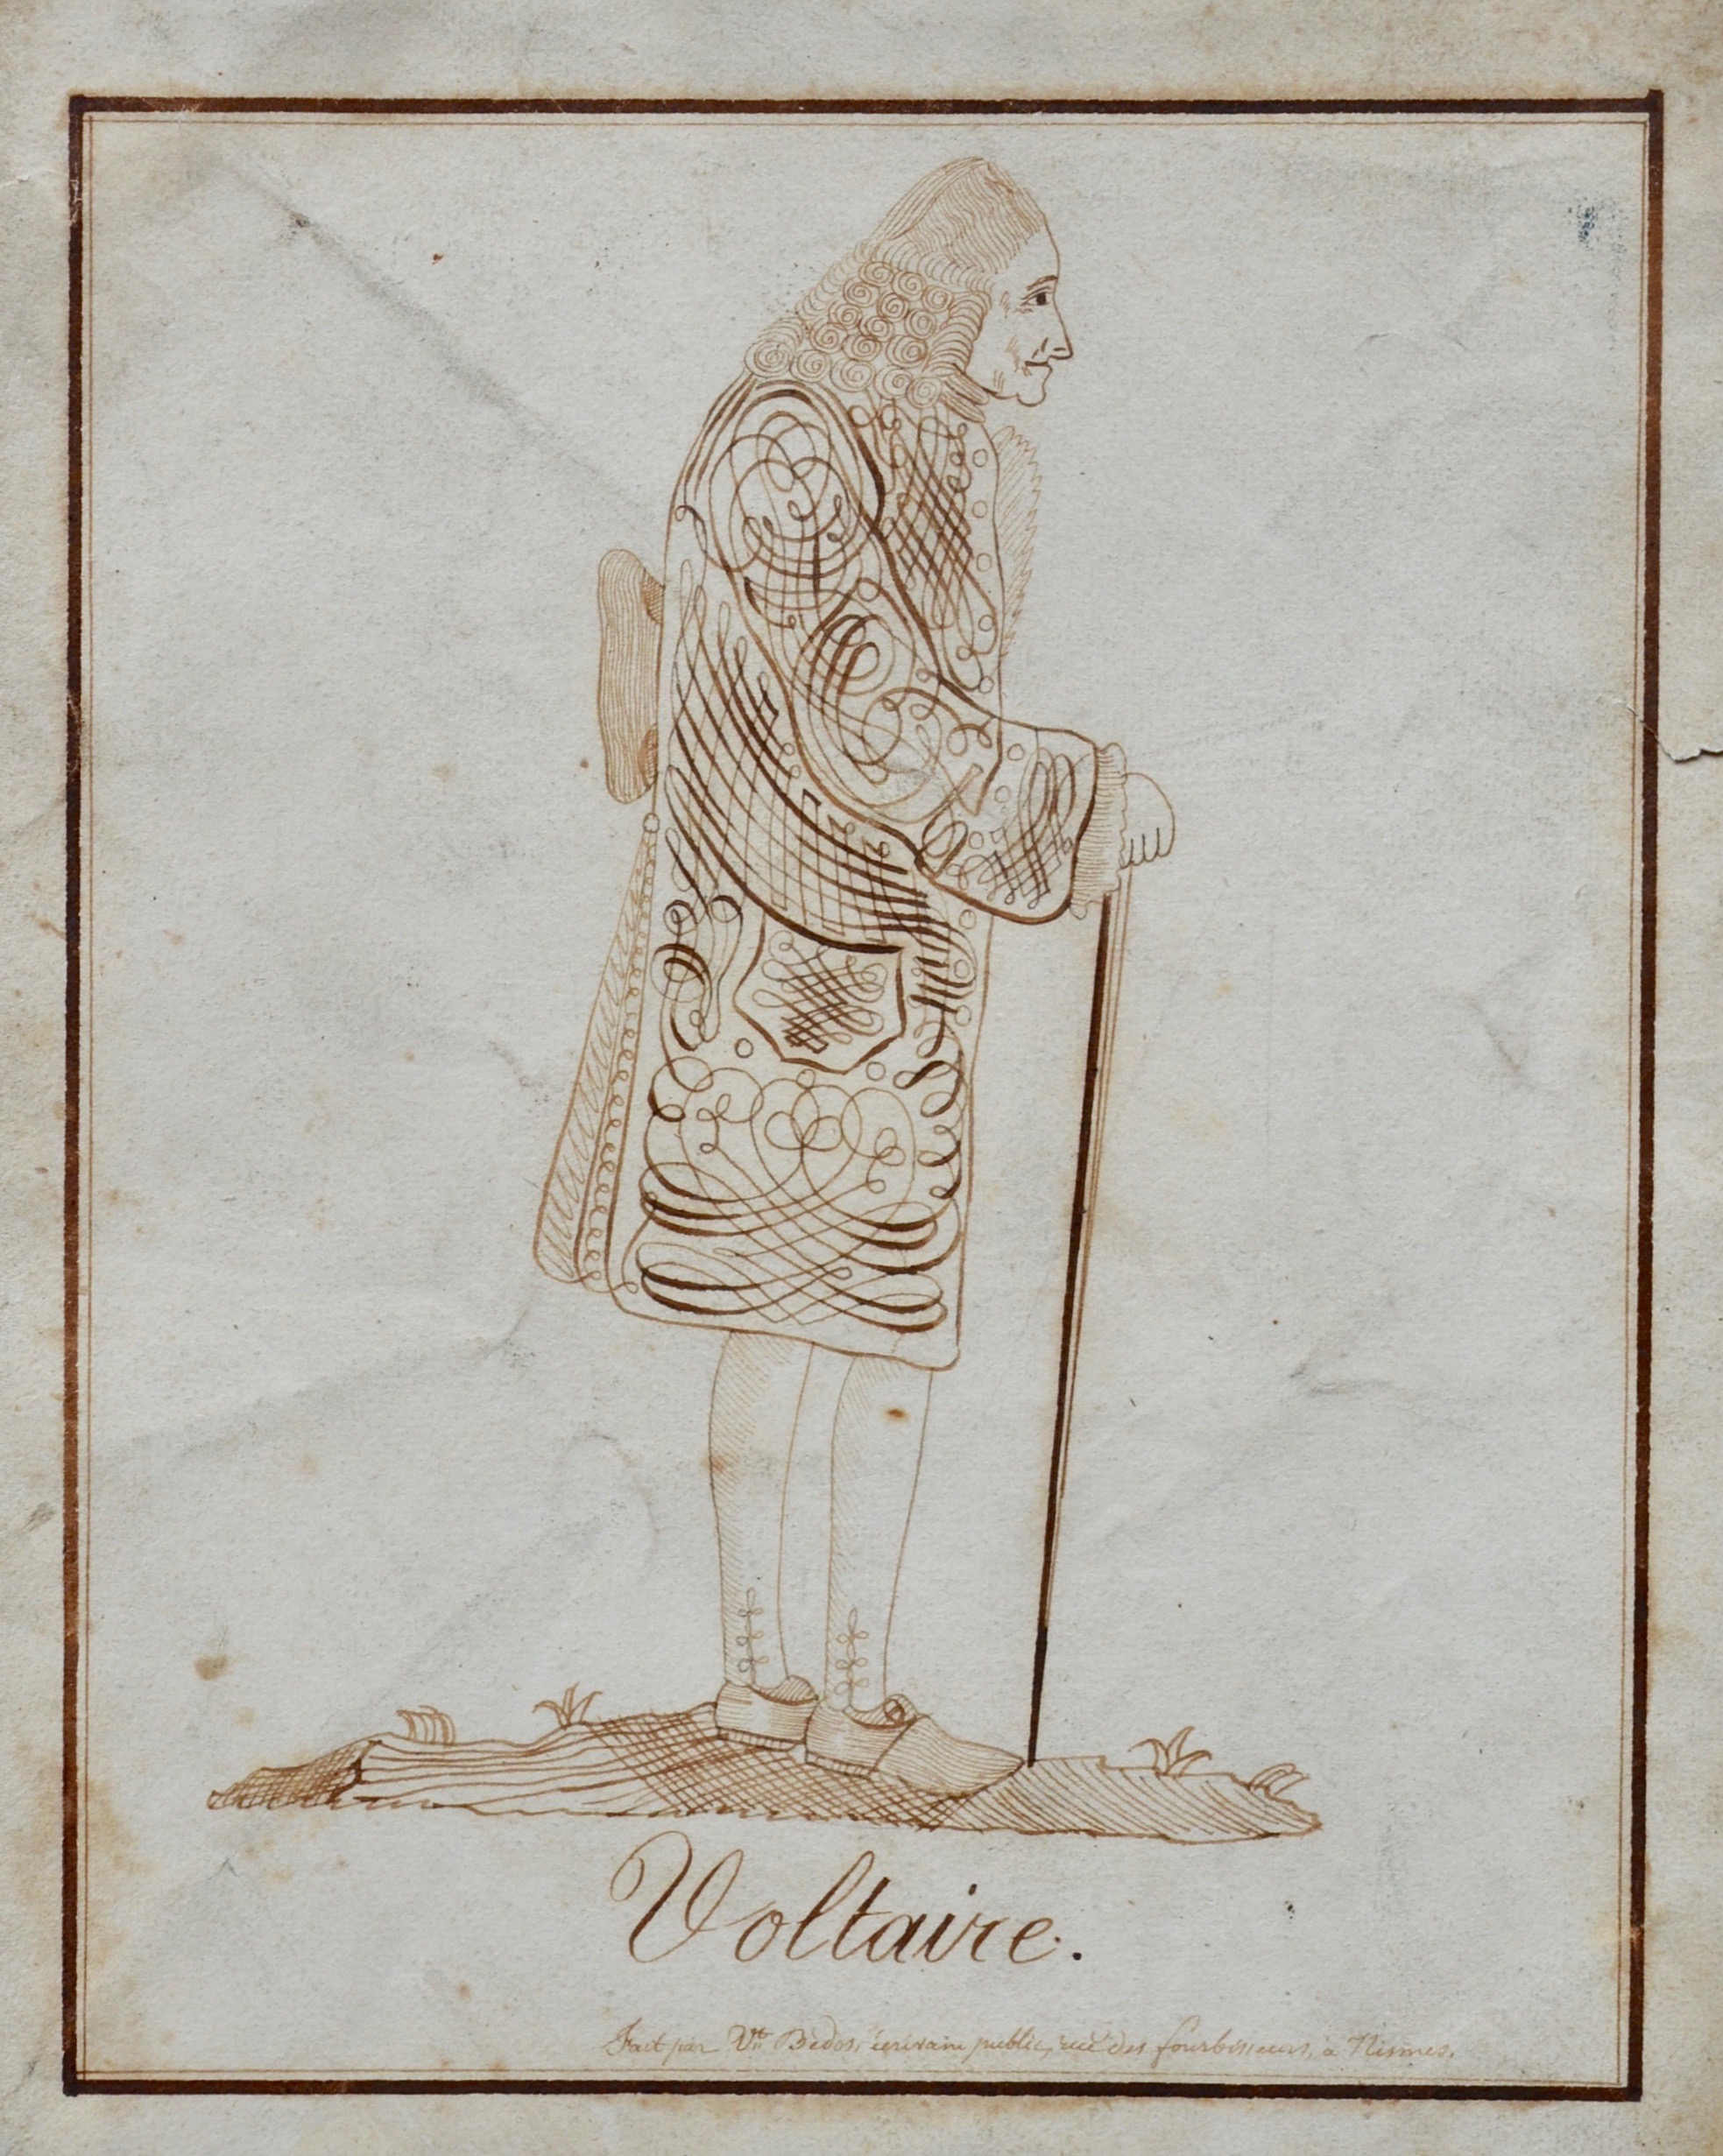 Voltaire.
Fait par Vt Bedos, écrivain public, rue des fourbisseurs, à Nismes.